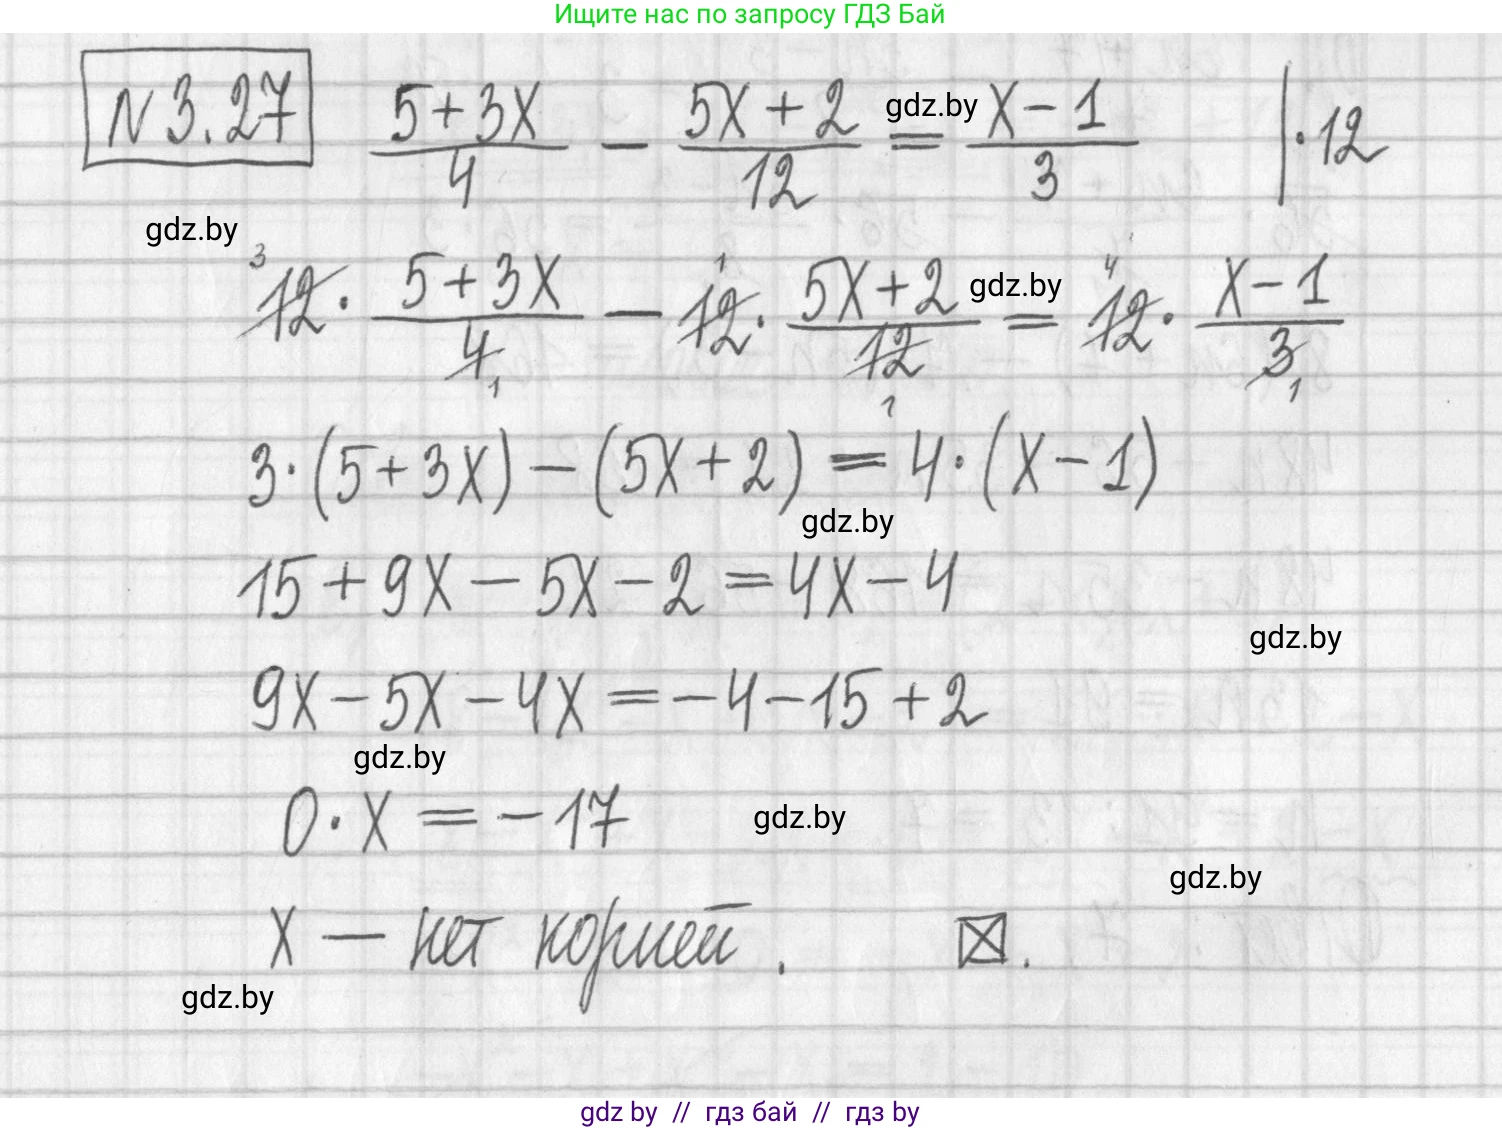 Ищите нас по запросу ГДЗ Бай
N 3.27 (5+3x)/4 − (5x+2)/12 = (x−1)/3 | ·12
gdz.by
gdz.by
3 1 4
12 · (5+3x)/4 − 12 · (5x+2)/12 = 12 · (x−1)/3
gdz.by
1 1 1
3·(5+3x)−(5x+2)=4·(x−1)
gdz.by
15+9x−5x−2=4x−4
gdz.by
9x−5x−4x=−4−15+2
gdz.by
0·x=−17
gdz.by
gdz.by
x — нет корней.
gdz.by
gdz by // гдз бай // гдз by